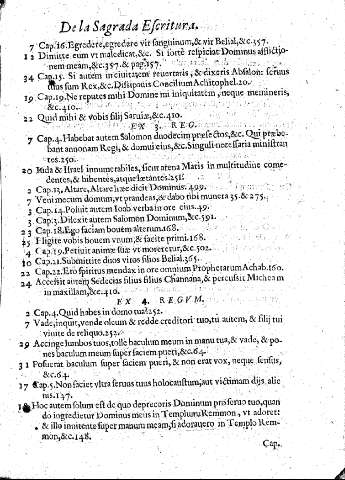 De la Sagrada Escritura.
7 Cap.16. Egredere, egredere vir sanguinum, & vir Belial, &c.357.
12 Dimitte eum vt maledicat, &c. Si forte respiciat Dominus afflictio-
nem meam, &c.357. & pag.357.
34 Cap.15. Si autem in ciuitatem reuertaris, & dixeris Absalon: seruus
tuus sum Rex, &c. Dissipauis Concilium Achitophel.20.
19 Cap.19. Ne reputes mihi Domine mi iniquitatem, neque memineris,
&c.410.
22 Quid mihi & vobis filij Saruiæ, &c.410.
EX 3. REG.
7 Cap.4. Habebat autem Salomon duodecim præfectos, &c. Qui præbe-
bant annonam Regi, & domui eius, &c. Singuli necessaria ministran
tes.250.
20 Iuda & Israel innumerabiles, sicut arena Maris in multitudine come-
dentes, & bibentes, atque lætantes.251.
2 Cap.13. Altare, Altare hæc dicit Dominus. 499.
7 Veni mecum domum, vt prandeas, & dabo tibi munera 35. & 275.
3 Cap.14. Posuit autem Ioab verba in ore eius.49.
3 Cap.3. Dilexit autem Salomon Dominum, &c.591.
23 Cap.18. Ego faciam bouem alterum.168.
25 Eligite vobis bouem vnum, & facite primi.168.
4 Cap.19. Petiuit animæ suæ vt moreretur, &c.502.
10 Cap.21. Submittite duos viros filios Belial.365.
22 Cap.22. Ero spiritus mendax in ore omnium Prophetarum Achab.160.
24 Accessit autem Sedecias filius filius Channana, & percussit Micheam
in maxillam, &c.410.
EX 4. REGVM.
2 Cap.4. Quid habes in domo tua? 252.
7 Vade, inquit, vende oleum & redde creditori tuo, tu autem, & filij tui
viuite de reliquo.252.
29 Accinge lumbos tuos, tolle baculum meum in manu tua, & vade, & po-
nes baculum meum super faciem pueri, &c.64.
31 Posuerat baculum super faciem pueri, & non erat vox, neque sensus,
&c.64.
17 Cap.5. Non faciet vltra seruus tuus holocaustum, aut victimam dijs alie
nis.147.
Hoc autem solum est de quo deprecoris Dominum pro seruo tuo, quan
do ingredietur Dominus meus in Templum Remmon, vt adoret
& illo innitente super manum meam, si adorauero in Templo Rem-
mon, &c.148.
Cap.